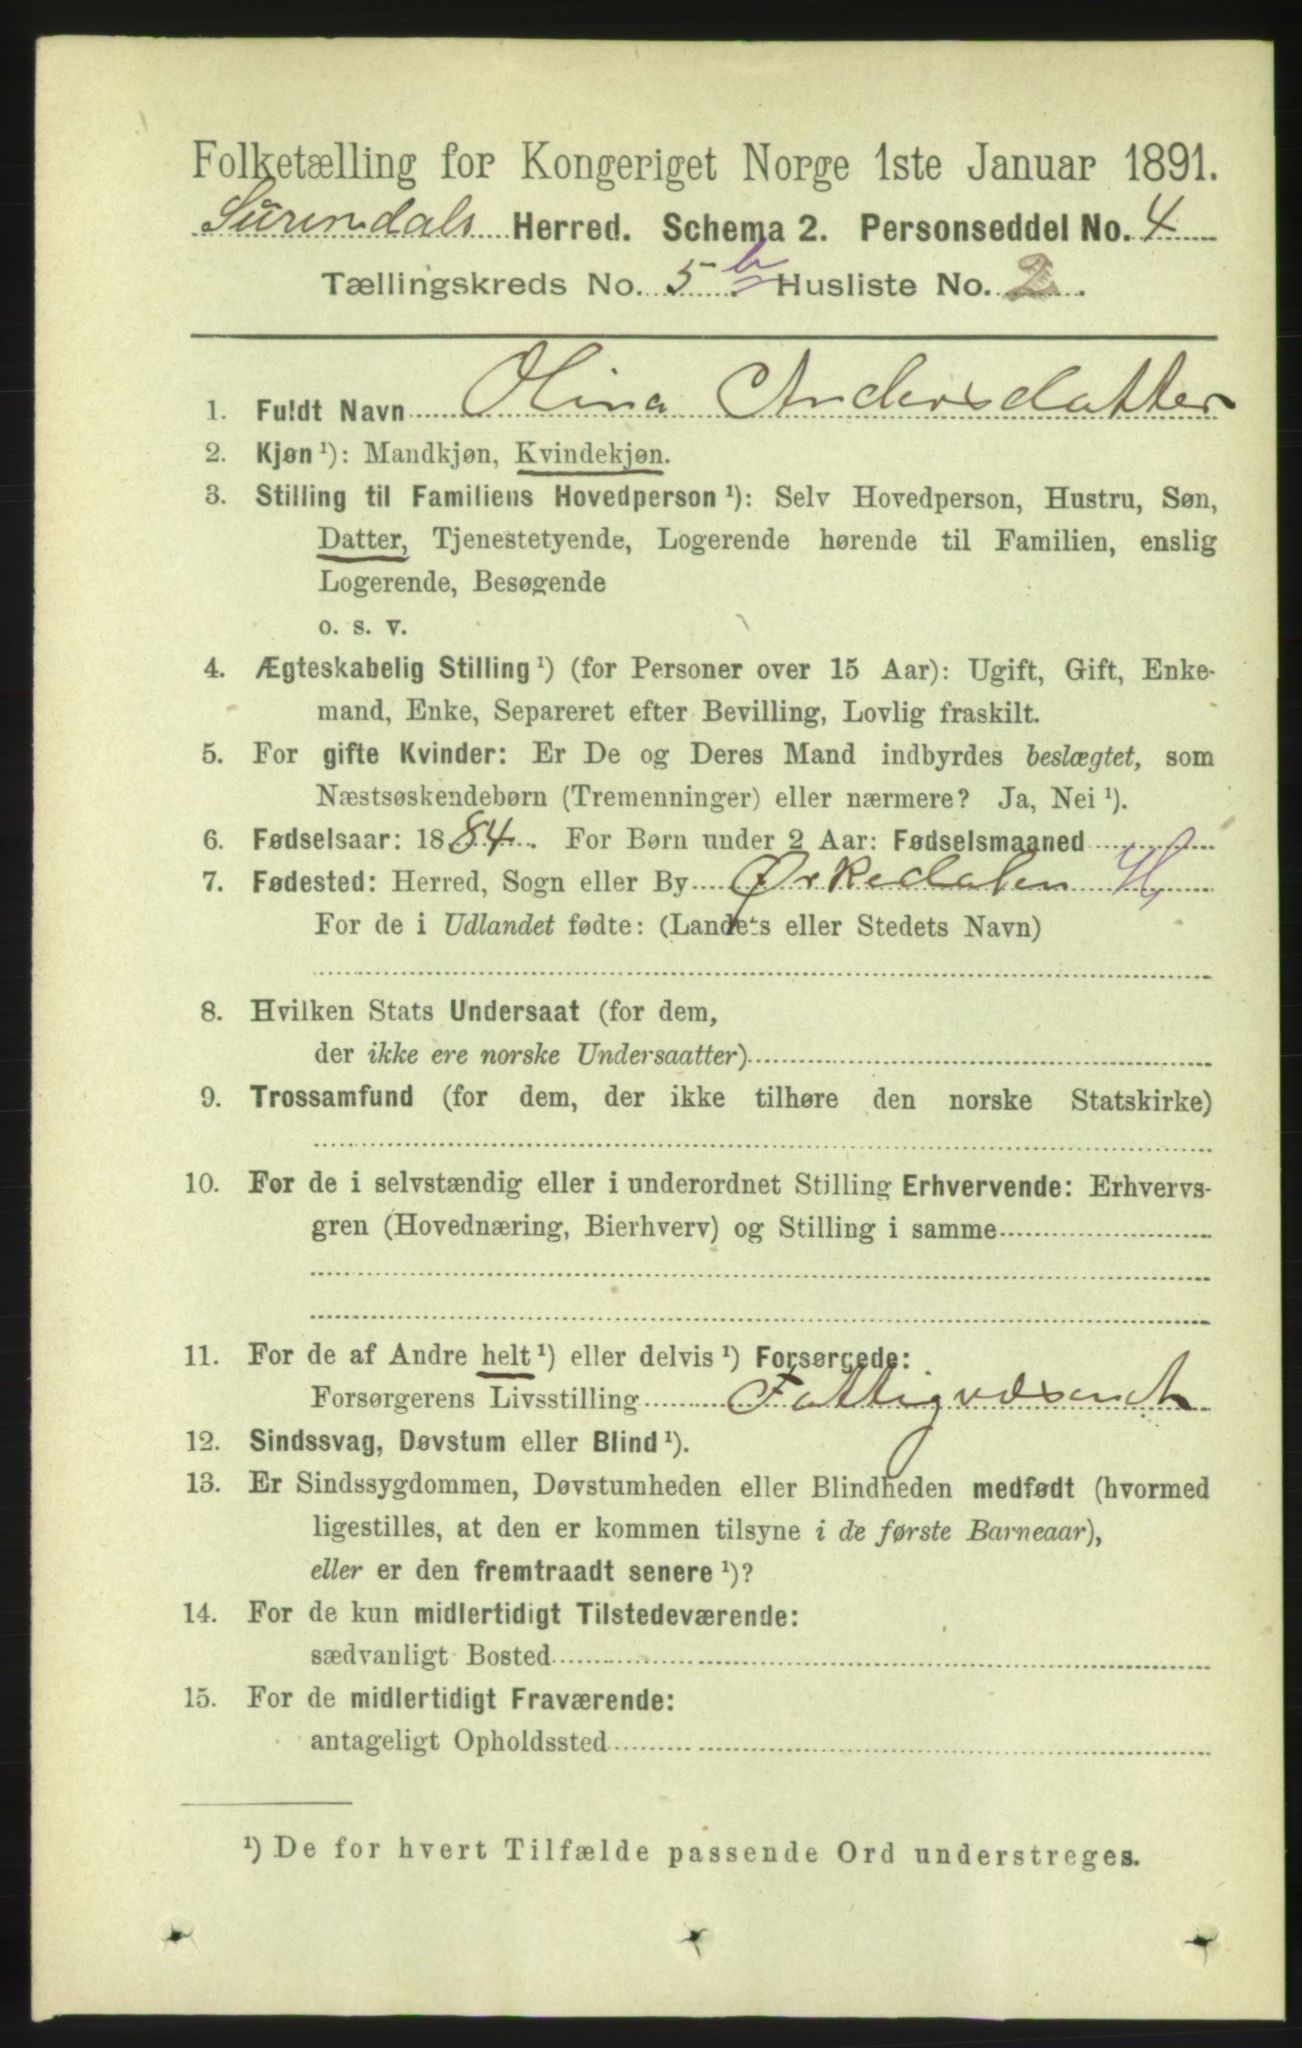 Folketælling for Kongeriget Norge 1ste Januar 1891.
Surendals Herred. Schema 2. Personseddel No. 4
Tællingskreds No. 5 b Husliste No. 2
1. Fuldt Navn Olina Andersdatter
2. Kjøn ¹): Mandkjøn, Kvindekjøn.
3. Stilling til Familiens Hovedperson ¹): Selv Hovedperson, Hustru, Søn,
Datter, Tjenestetyende, Logerende hørende til Familien, enslig
Logerende, Besøgende
o. s. v.
4. Ægteskabelig Stilling ¹) (for Personer over 15 Aar): Ugift, Gift, Enke-
mand, Enke, Separeret efter Bevilling, Lovlig fraskilt.
5. For gifte Kvinder: Er De og Deres Mand indbyrdes beslægtet, som
Næstsøskendebørn (Tremenninger) eller nærmere? Ja, Nei ¹).
6. Fødselsaar: 1884. For Børn under 2 Aar: Fødselsmaaned
7. Fødested: Herred, Sogn eller By Ørkedalen H
For de i Udlandet fødte: (Landets eller Stedets Navn)
8. Hvilken Stats Undersaat (for dem,
der ikke ere norske Undersaatter)
9. Trossamfund (for dem, der ikke tilhøre den norske Statskirke)
10. For de i selvstændig eller i underordnet Stilling Erhvervende: Erhvervs-
gren (Hovednæring, Bierhverv) og Stilling i samme
11. For de af Andre helt ¹) eller delvis ¹) Forsørgede:
Forsørgerens Livsstilling Fattigvæsenet
12. Sindssvag, Døvstum eller Blind ¹).
13. Er Sindssygdommen, Døvstumheden eller Blindheden medfødt (hvormed
ligestilles, at den er kommen tilsyne i de første Barneaar),
eller er den fremtraadt senere ¹)?
14. For de kun midlertidigt Tilstedeværende:
sædvanligt Bosted
15. For de midlertidigt Fraværende:
antageligt Opholdssted
¹) De for hvert Tilfælde passende Ord understreges.